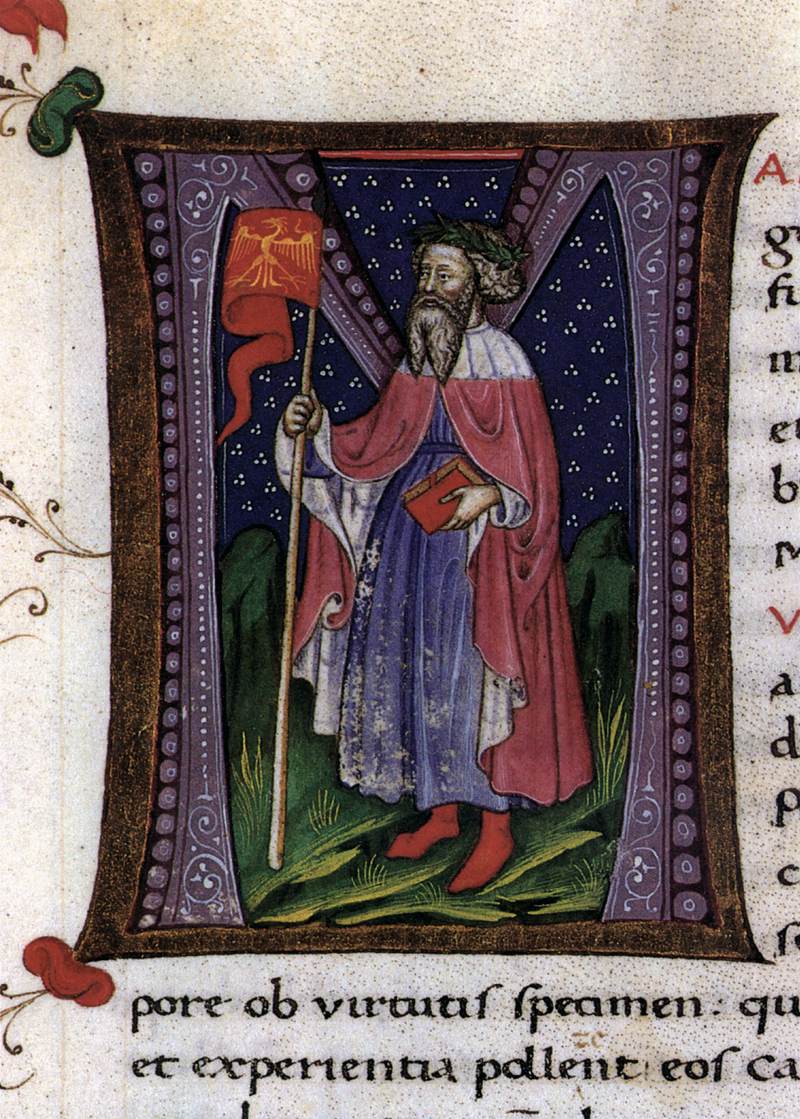 M
A
gr
fi
m
et
b
M
V
a
d
p
c
pore ob virtutis specimen: qu
et experientia pollent eos ca